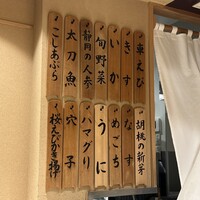 車えび
きす
いか
旬野菜
静岡の人参
太刀魚
こしあぶら
胡桃の新芽
なす
めごち
うに
ハマグリ
穴子
桜えびかき揚げ